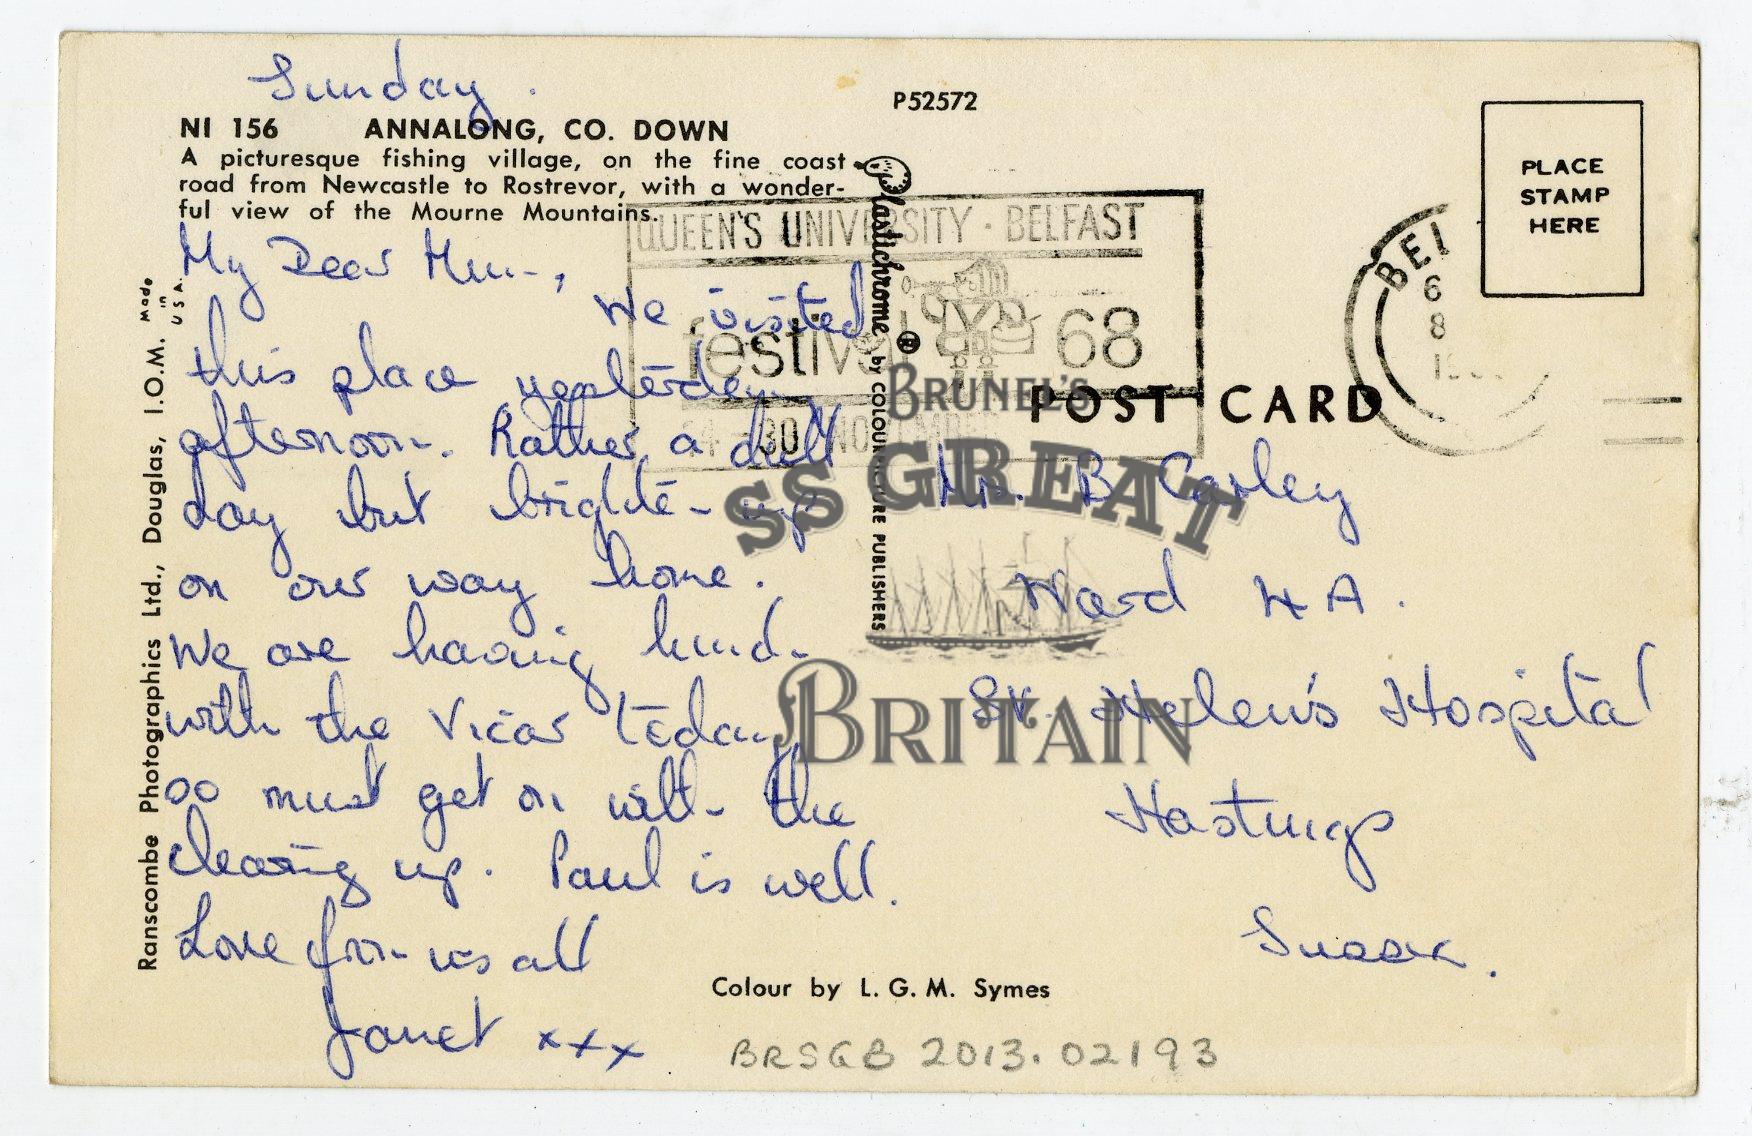 Sunday.
P52572
NI 156 ANNALONG, CO. DOWN
A picturesque fishing village, on the fine coast
road from Newcastle to Rostrevor, with a wonder-
ful view of the Mourne Mountains.
My Dear Mum,
We visited
this place yesterday
afternoon. Rather a dull
day but brighte- up
on our way home.
We are having
with the Vicar today
so must get on with the
clearing up. Paul is well.
Love from us all
Janet xxx
Ranscombe Photographics Ltd., Douglas, I.O.M.
Made
in
U.S.A.
Plastichrome ® by COLOURPICTURE PUBLISHERS
QUEEN'S UNIVERSITY · BELFAST
festival 68
30 NOVEM
BEL
6
8
PLACE
STAMP
HERE
POST CARD
B Carley
Ward 4A.
St. Helen's Hospital
Hastings
Sussex.
Colour by L. G. M. Symes
BRSGB 2013.02193
BRUNEL'S
SS GREAT
BRITAIN